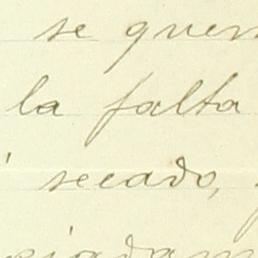 se quer
la falta
secado,